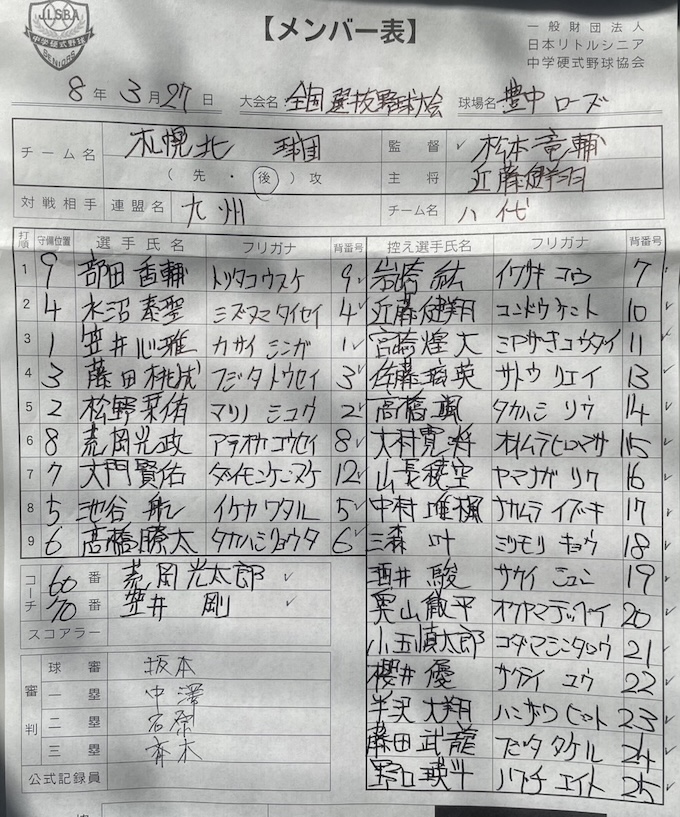 JLSBA
中学硬式野球
SENIORS
【メンバー表】
一般財団法人
日本リトルシニア
中学硬式野球協会
8年 3月27日 大会名 全国選抜野球大会 球場名 豊中ローズ
チーム名 札幌北 球団 監督 松本竜輔
(先・後)攻 主将 近藤健翔
対戦相手 連盟名 九州 チーム名 八代
打順 守備位置 選手氏名 フリガナ 背番号 控え選手氏名 フリガナ 背番号
1 9 部田香輔 トッタコウスケ 9 岩崎紘 イワサキ コウ 7
2 4 水沼泰聖 ミズヌマタイセイ 4 近藤健翔 コンドウケント 10
3 1 笠井心雅 カサイ シンガ 1 宮崎煌大 ミヤザキコウタイ 11
4 3 藤田桃成 フジタ トウセイ 3 佐藤 英 サトウ リエイ 13
5 2 松野栞侑 マツノ シュウ 2 高橋颯 タカハシ リウ 14
6 8 荒岡光政 アラオカコウセイ 8 大村寛将 オオムラヒロマサ 15
7 7 大門賢佑 ダイモンケンスケ 12 山長稜空 ヤマナガ リク 16
8 5 池谷航 イケガヤ ワタル 5 中村唯楓 ナカムラ イブキ 17
9 6 高橋勝太 タカハシショウタ 6 三森叶 ミツモリ キョウ 18
コーチ 60番 荒岡光太郎 酒井駿 サカイ シュン 19
70番 笠井剛 奥山徹平 オクヤマテッペイ 20
スコアラー 小玉慎太郎 コダマシンタロウ 21
審判 球審 坂本 櫻井優 サクライ ユウ 22
一塁 中澤 半沢大翔 ハンザワ ヒロト 23
二塁 石原 藤田武龍 フジタ タケル 24
三塁 斉木 野口瑛斗 ノグチ エイト 25
公式記録員